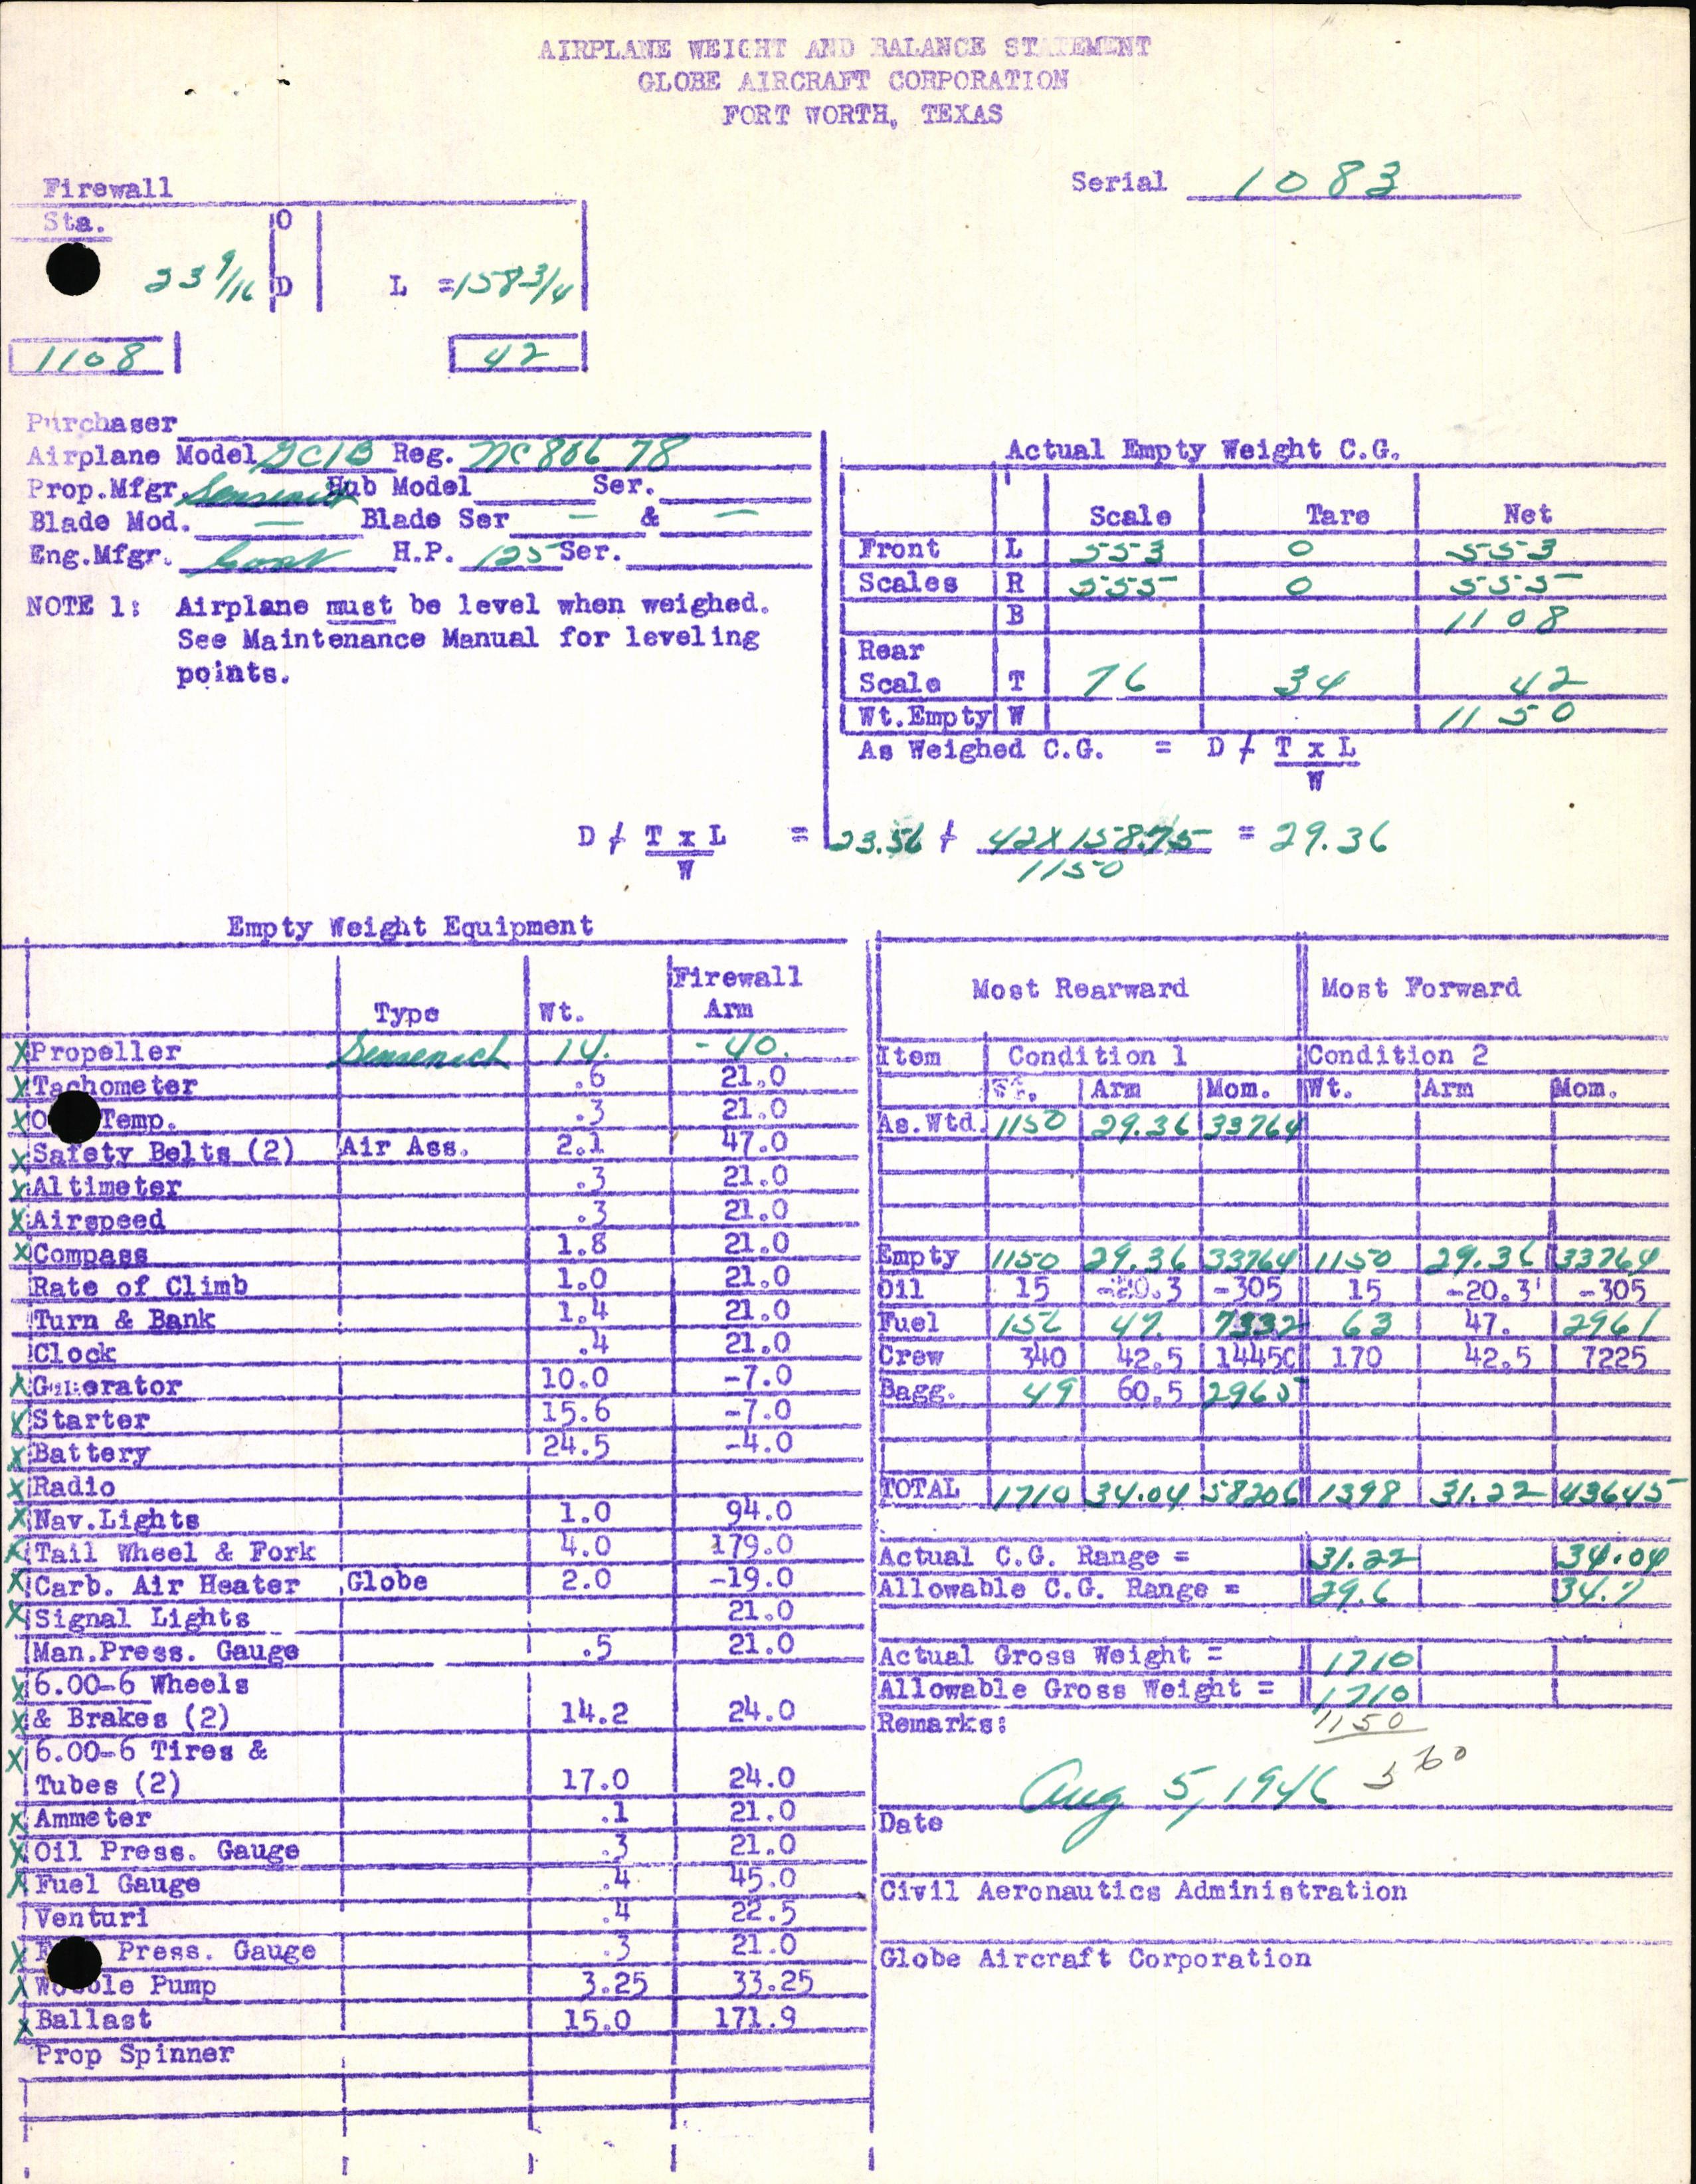 AIRPLANE WEIGHT AND BALANCE STATEMENT
GLOBE AIRCRAFT CORPORATION
FORT WORTH, TEXAS
Serial 1083
Firewall
Sta. O
23 9/16 D L =158 3/4
1108 42
Purchaser
Airplane Model GC1B Reg. NC 806 78
Prop.Mfgr. Sensenich Hub Model Ser.
Blade Mod. — Blade Ser — & —
Eng.Mfgr. H.P. 125 Ser.
NOTE 1: Airplane must be level when weighed.
See Maintenance Manual for leveling
points.
Actual Empty Weight C.G.
Scale Tare Net
Front L 553 0 553
Scales R 555 0 555
B 1108
Rear
Scale T 76 34 42
Wt.Empty W 1150
As Weighed C.G. = D + T x L
W
D + T x L = 23.56 + 42X158.75 = 29.36
W 1150
Empty Weight Equipment
Type Wt. Firewall
Arm
X Propeller Sensenich 14. -40.
X Tachometer .6 21.0
X O Temp. .3 21.0
X Safety Belts (2) Air Ass. 2.1 47.0
X Altimeter .3 21.0
X Airspeed .3 21.0
X Compass 1.8 21.0
Rate of Climb 1.0 21.0
Turn & Bank 1.4 21.0
Clock .4 21.0
X Generator 10.0 -7.0
X Starter 15.6 -7.0
X Battery 24.5 -4.0
X Radio
X Nav.Lights 1.0 94.0
X Tail Wheel & Fork 4.0 179.0
X Carb. Air Heater Globe 2.0 -19.0
X Signal Lights 21.0
Man.Press. Gauge .5 21.0
X 6.00-6 Wheels
X & Brakes (2) 14.2 24.0
X 6.00-6 Tires &
Tubes (2) 17.0 24.0
X Ammeter .1 21.0
X Oil Press. Gauge .3 21.0
X Fuel Gauge .4 45.0
Venturi .4 22.5
X Press. Gauge .3 21.0
X Wobble Pump 3.25 33.25
X Ballast 15.0 171.9
Prop Spinner
Most Rearward Most Forward
Item Condition 1 Condition 2
Wt. Arm Mom. Wt. Arm Mom.
As.Wtd. 1150 29.36 33764
Empty 1150 29.36 33764 1150 29.36 33764
Oil 15 -20.3 -305 15 -20.3 -305
Fuel 156 47. 7332 63 47. 2961
Crew 340 42.5 14450 170 42.5 7225
Bagg. 49 60.5 2965
TOTAL 1710 34.04 58206 1398 31.22 43645
Actual C.G. Range = 31.22 34.04
Allowable C.G. Range = 29.6 34.7
Actual Gross Weight = 1710
Allowable Gross Weight = 1710
Remarks: 1150
560
Aug 5, 1946
Date
Civil Aeronautics Administration
Globe Aircraft Corporation